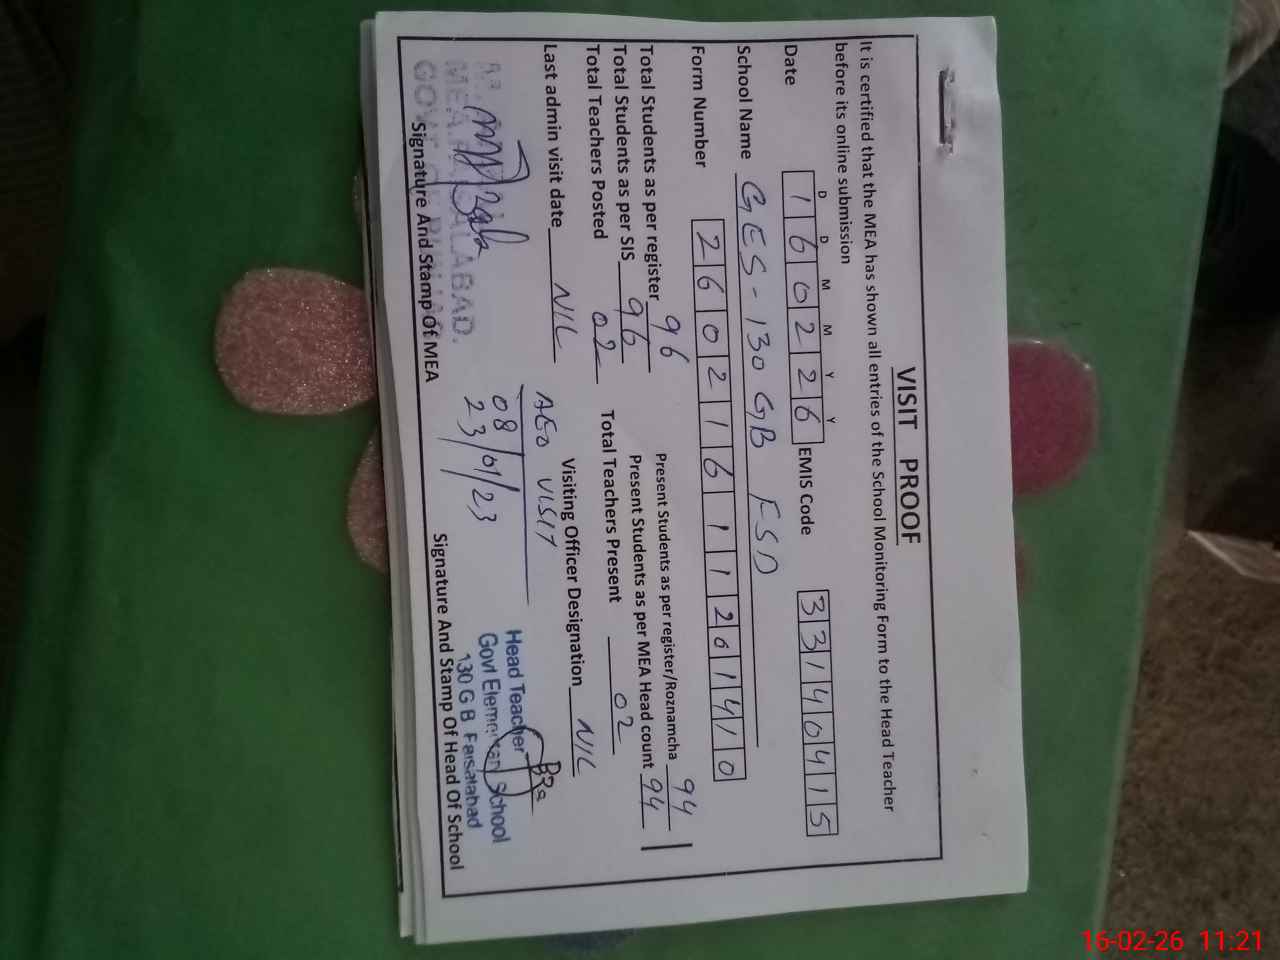 VISIT PROOF
It is certified that the MEA has shown all entries of the School Monitoring Form to the Head Teacher
before its online submission
D D M M Y Y
Date 1 6 0 2 2 6 EMIS Code 3 3 1 4 0 4 1 5
School Name GES - 130 GB FSD
Form Number 2 6 0 2 1 6 1 1 2 6 1 4 1 0
Total Students as per register 96 Present Students as per register/Roznamcha 94
Total Students as per SIS 96 Present Students as per MEA Head count 94
Total Teachers Posted 02 Total Teachers Present 02
Last admin visit date NIL Visiting Officer Designation NIL
AEO VISIT
08/01/23
23
Head Teacher
Govt Elementary School
130 G B Faisalabad
Signature And Stamp Of MEA Signature And Stamp Of Head Of School
16-02-26 11:21